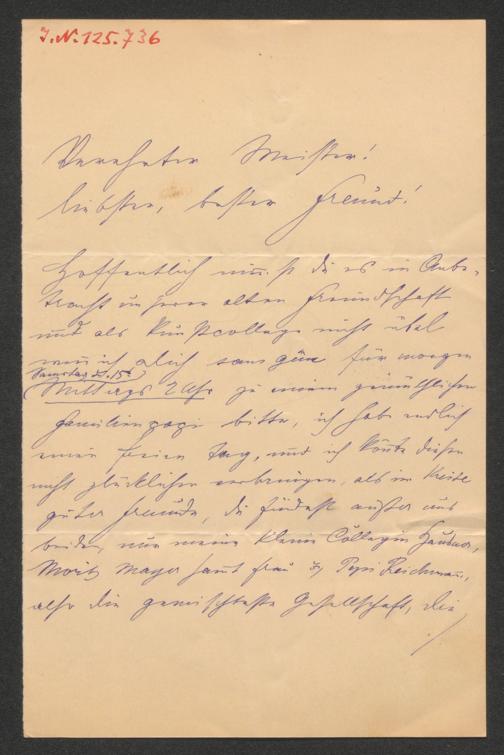 I.N. 125.736
Verehrter Meister!
liebster, bester Freund!
Hoffentlich nimmst du es in Anbe-
tracht unserer alten Freundschaft
und als Kunstcollege nicht übel
wenn ich dich sans gêne für morgen
(Samstag d. 15t)
Mittags 2 Uhr zu einem gemüthlichen
Familien bitte, ich habe endlich
einen freien Tag, und ich könnte diesen
nicht glücklicher verbringen, als im Kreise
guter Freunde, du findest außer uns
beiden, nur meine kleine Collegin
Moritz Mayer samt Frau u. Pepi Reichmann,
also die gemischteste Gesellschaft, die
./.